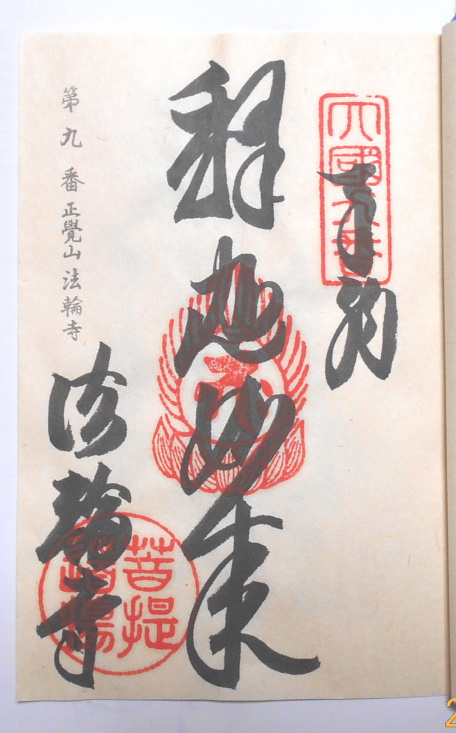 四國九番
奉納
釈迦如来
第九番 正覺山 法輪寺
法輪寺
菩提
道場